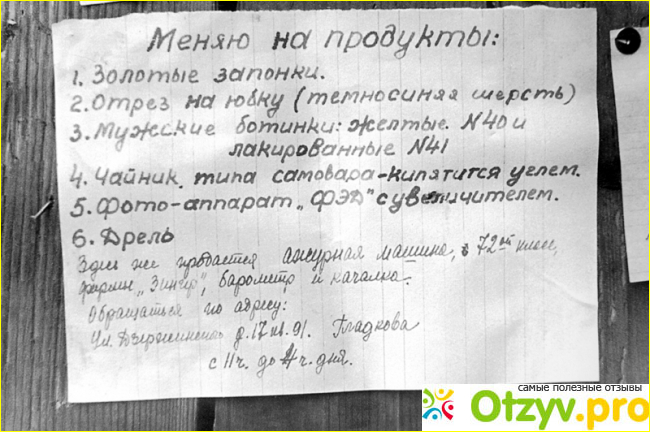 Меняю на продукты:
1. Золотые запонки.
2. Отрез на юбку (темносиняя шерсть)
3. Мужские ботинки: желтые N40 и
лакированные N41
4. Чайник типа самовара - кипятится углем.
5. Фото-аппарат „ФЭД" с увеличителем.
6. Дрель
Здесь же продается ажурная машина, 72ой класс,
фирмы „Зингер", барометр и качалка.
Обращаться по адресу:
Ул. Дзержинского д. 17 кв. 91. Гладкова
с 11 ч. до 4 ч. дня.
самые полезные отзывы
Otzyv.pro